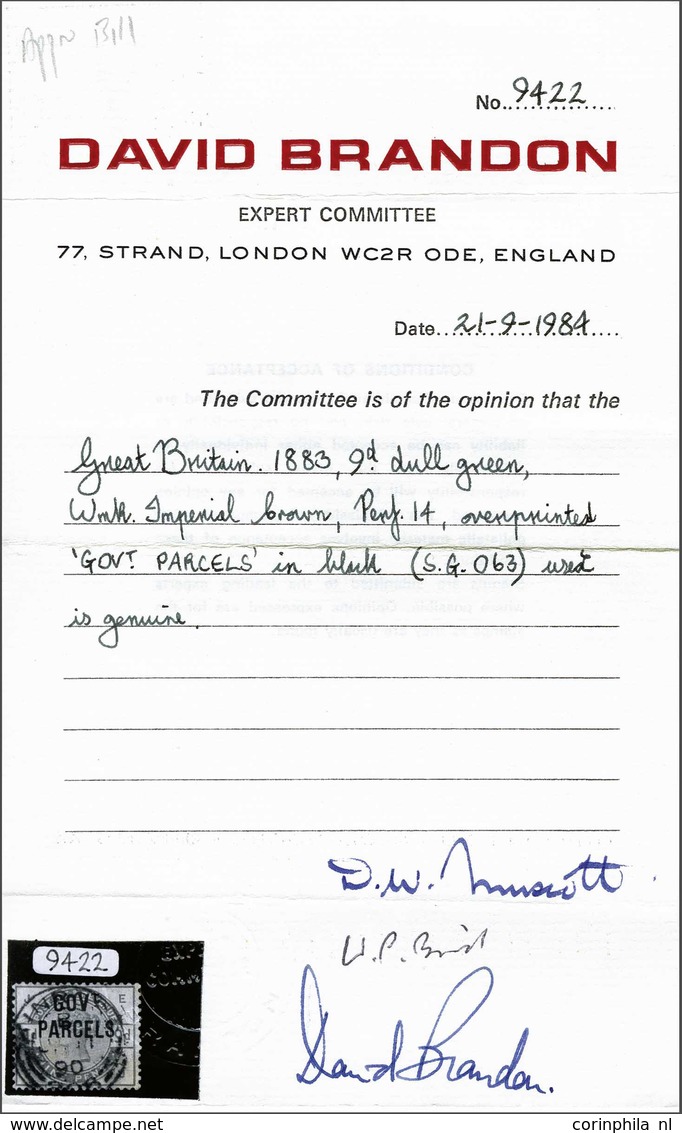 No. 9422
DAVID BRANDON
EXPERT COMMITTEE
77, STRAND, LONDON WC2R ODE, ENGLAND
Date 21-9-1984
The Committee is of the opinion that the
Great Britain. 1883, 9d dull green,
Wmk. Imperial Crown, Perf. 14, overprinted
'GOVT. PARCELS' in black (S.G. O63) used
is genuine.
D.W. Muscott
David Brandon.
9422
GOVT
PARCELS
90
corinphila nl